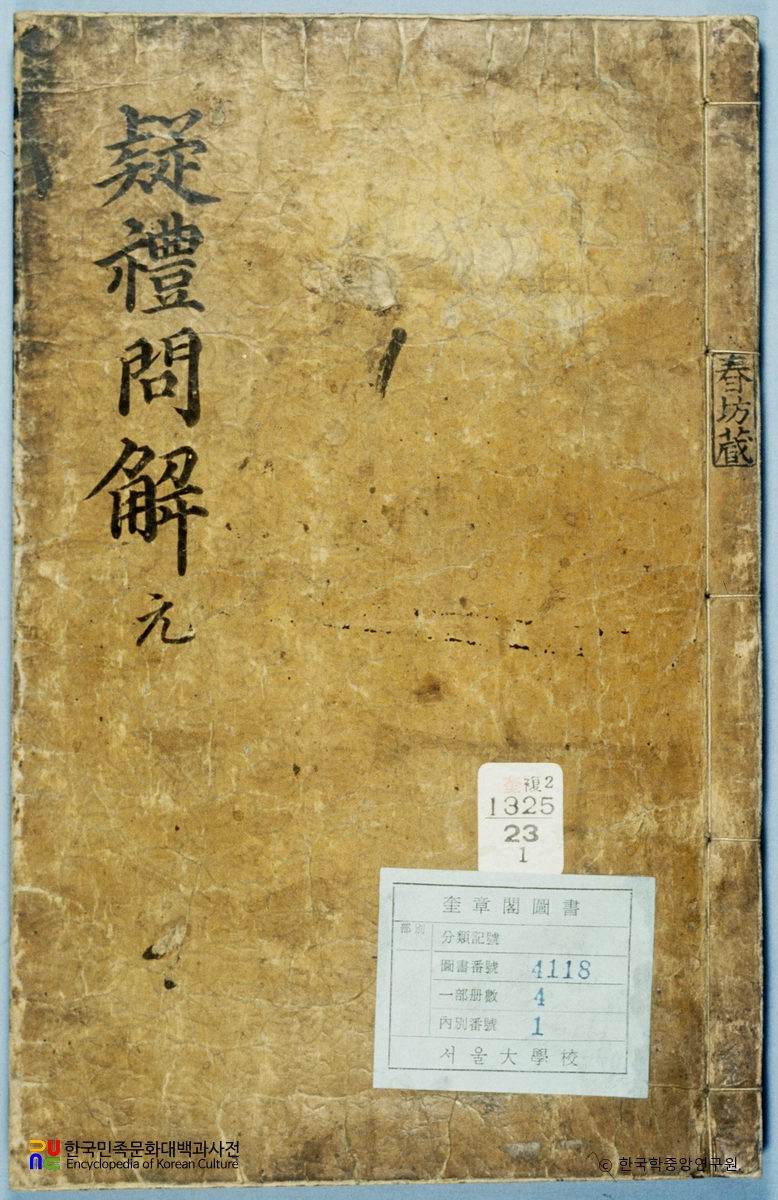 疑禮問解 元
春坊藏
奎複2
1325
23
1
奎章閣圖書
部別
分類記號
圖書番號 4118
一部册數 4
內別番號 1
서울大學校
한국민족문화대백과사전
Encyclopedia of Korean Culture
© 한국학중앙연구원